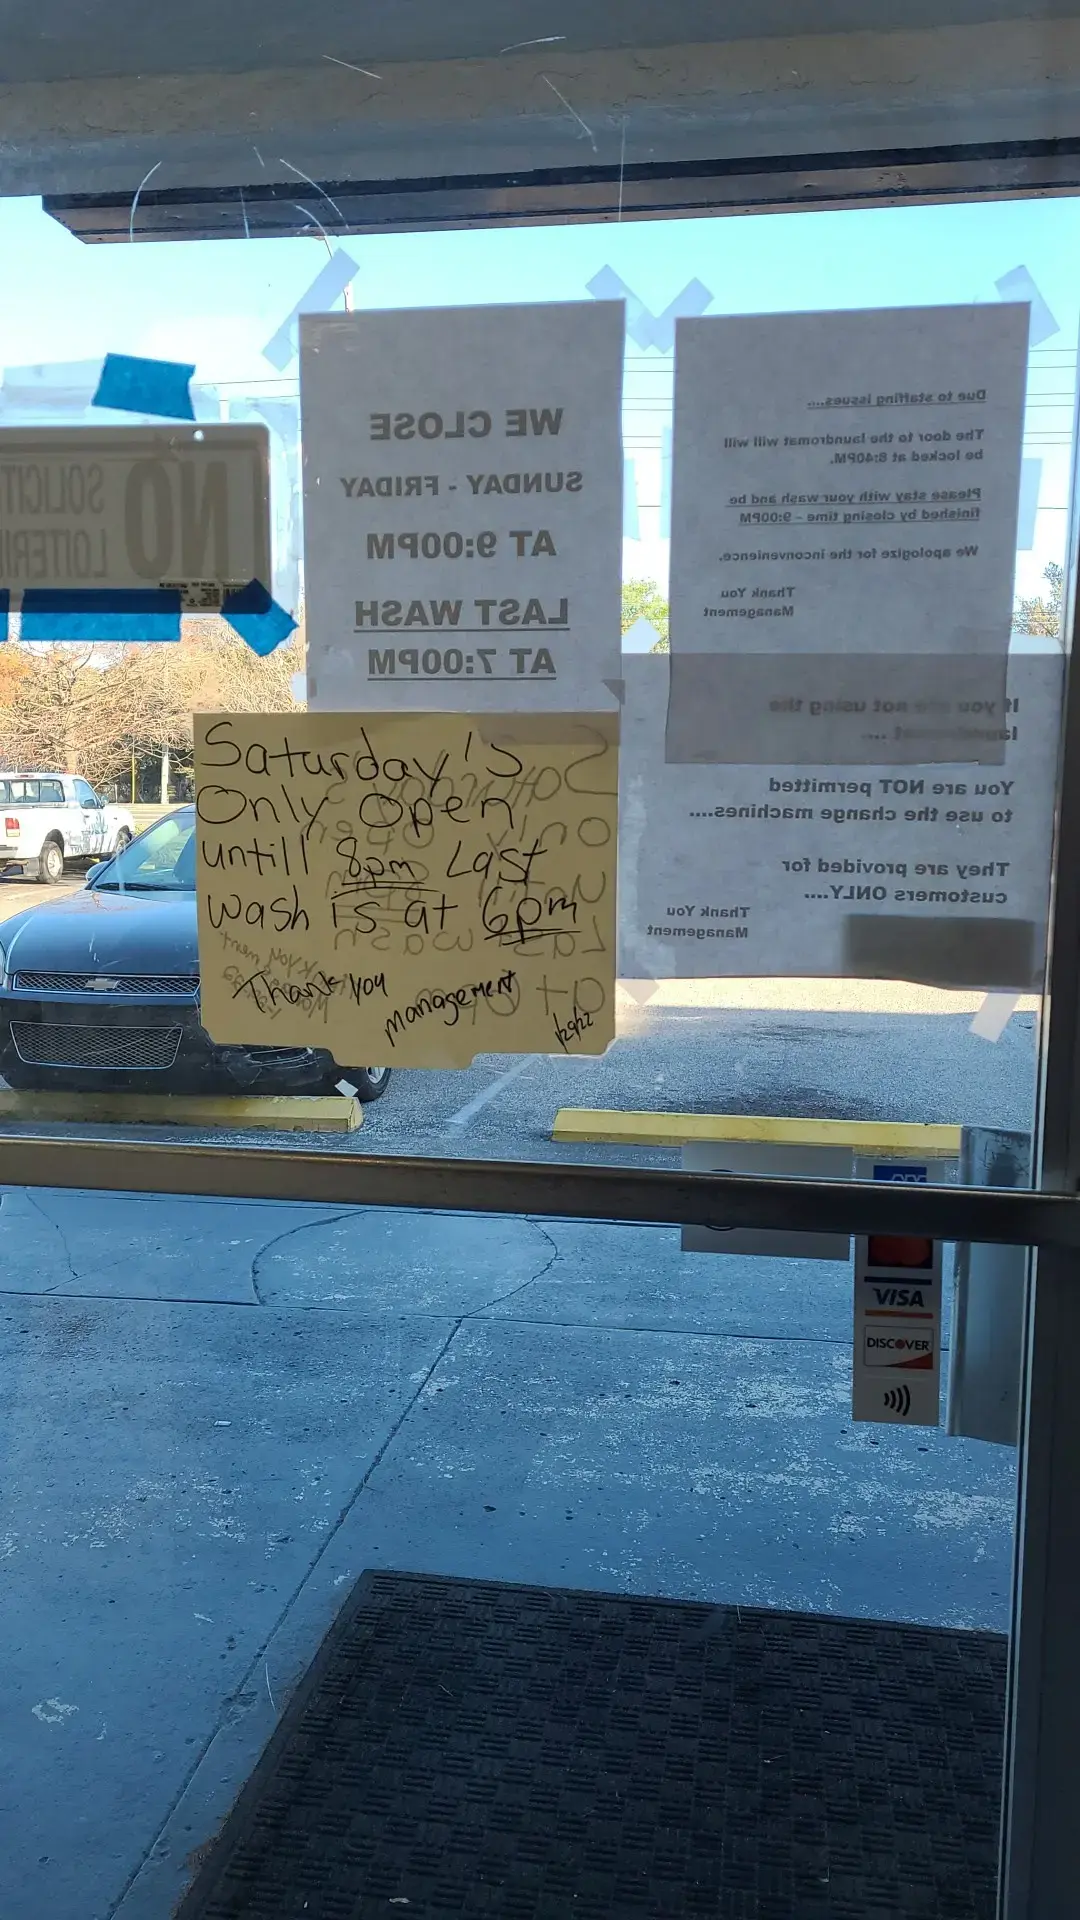 NO
SOLICIT
LOITERI
WE CLOSE
SUNDAY - FRIDAY
AT 9:00PM
LAST WASH
AT 7:00PM
Due to staffing issues....
The door to the laundromat will will
be locked at 8:40PM.
Please stay with your wash and be
finished by closing time – 9:00PM
We apologize for the inconvenience.
Thank You
Management
If you are not using the
You are NOT permitted
to use the change machines....
They are provided for
customers ONLY....
Thank You
Management
Saturday's
Only Open
untill 8pm Last
wash is at 6pm
Thank you
Management
VISA
DISCOVER